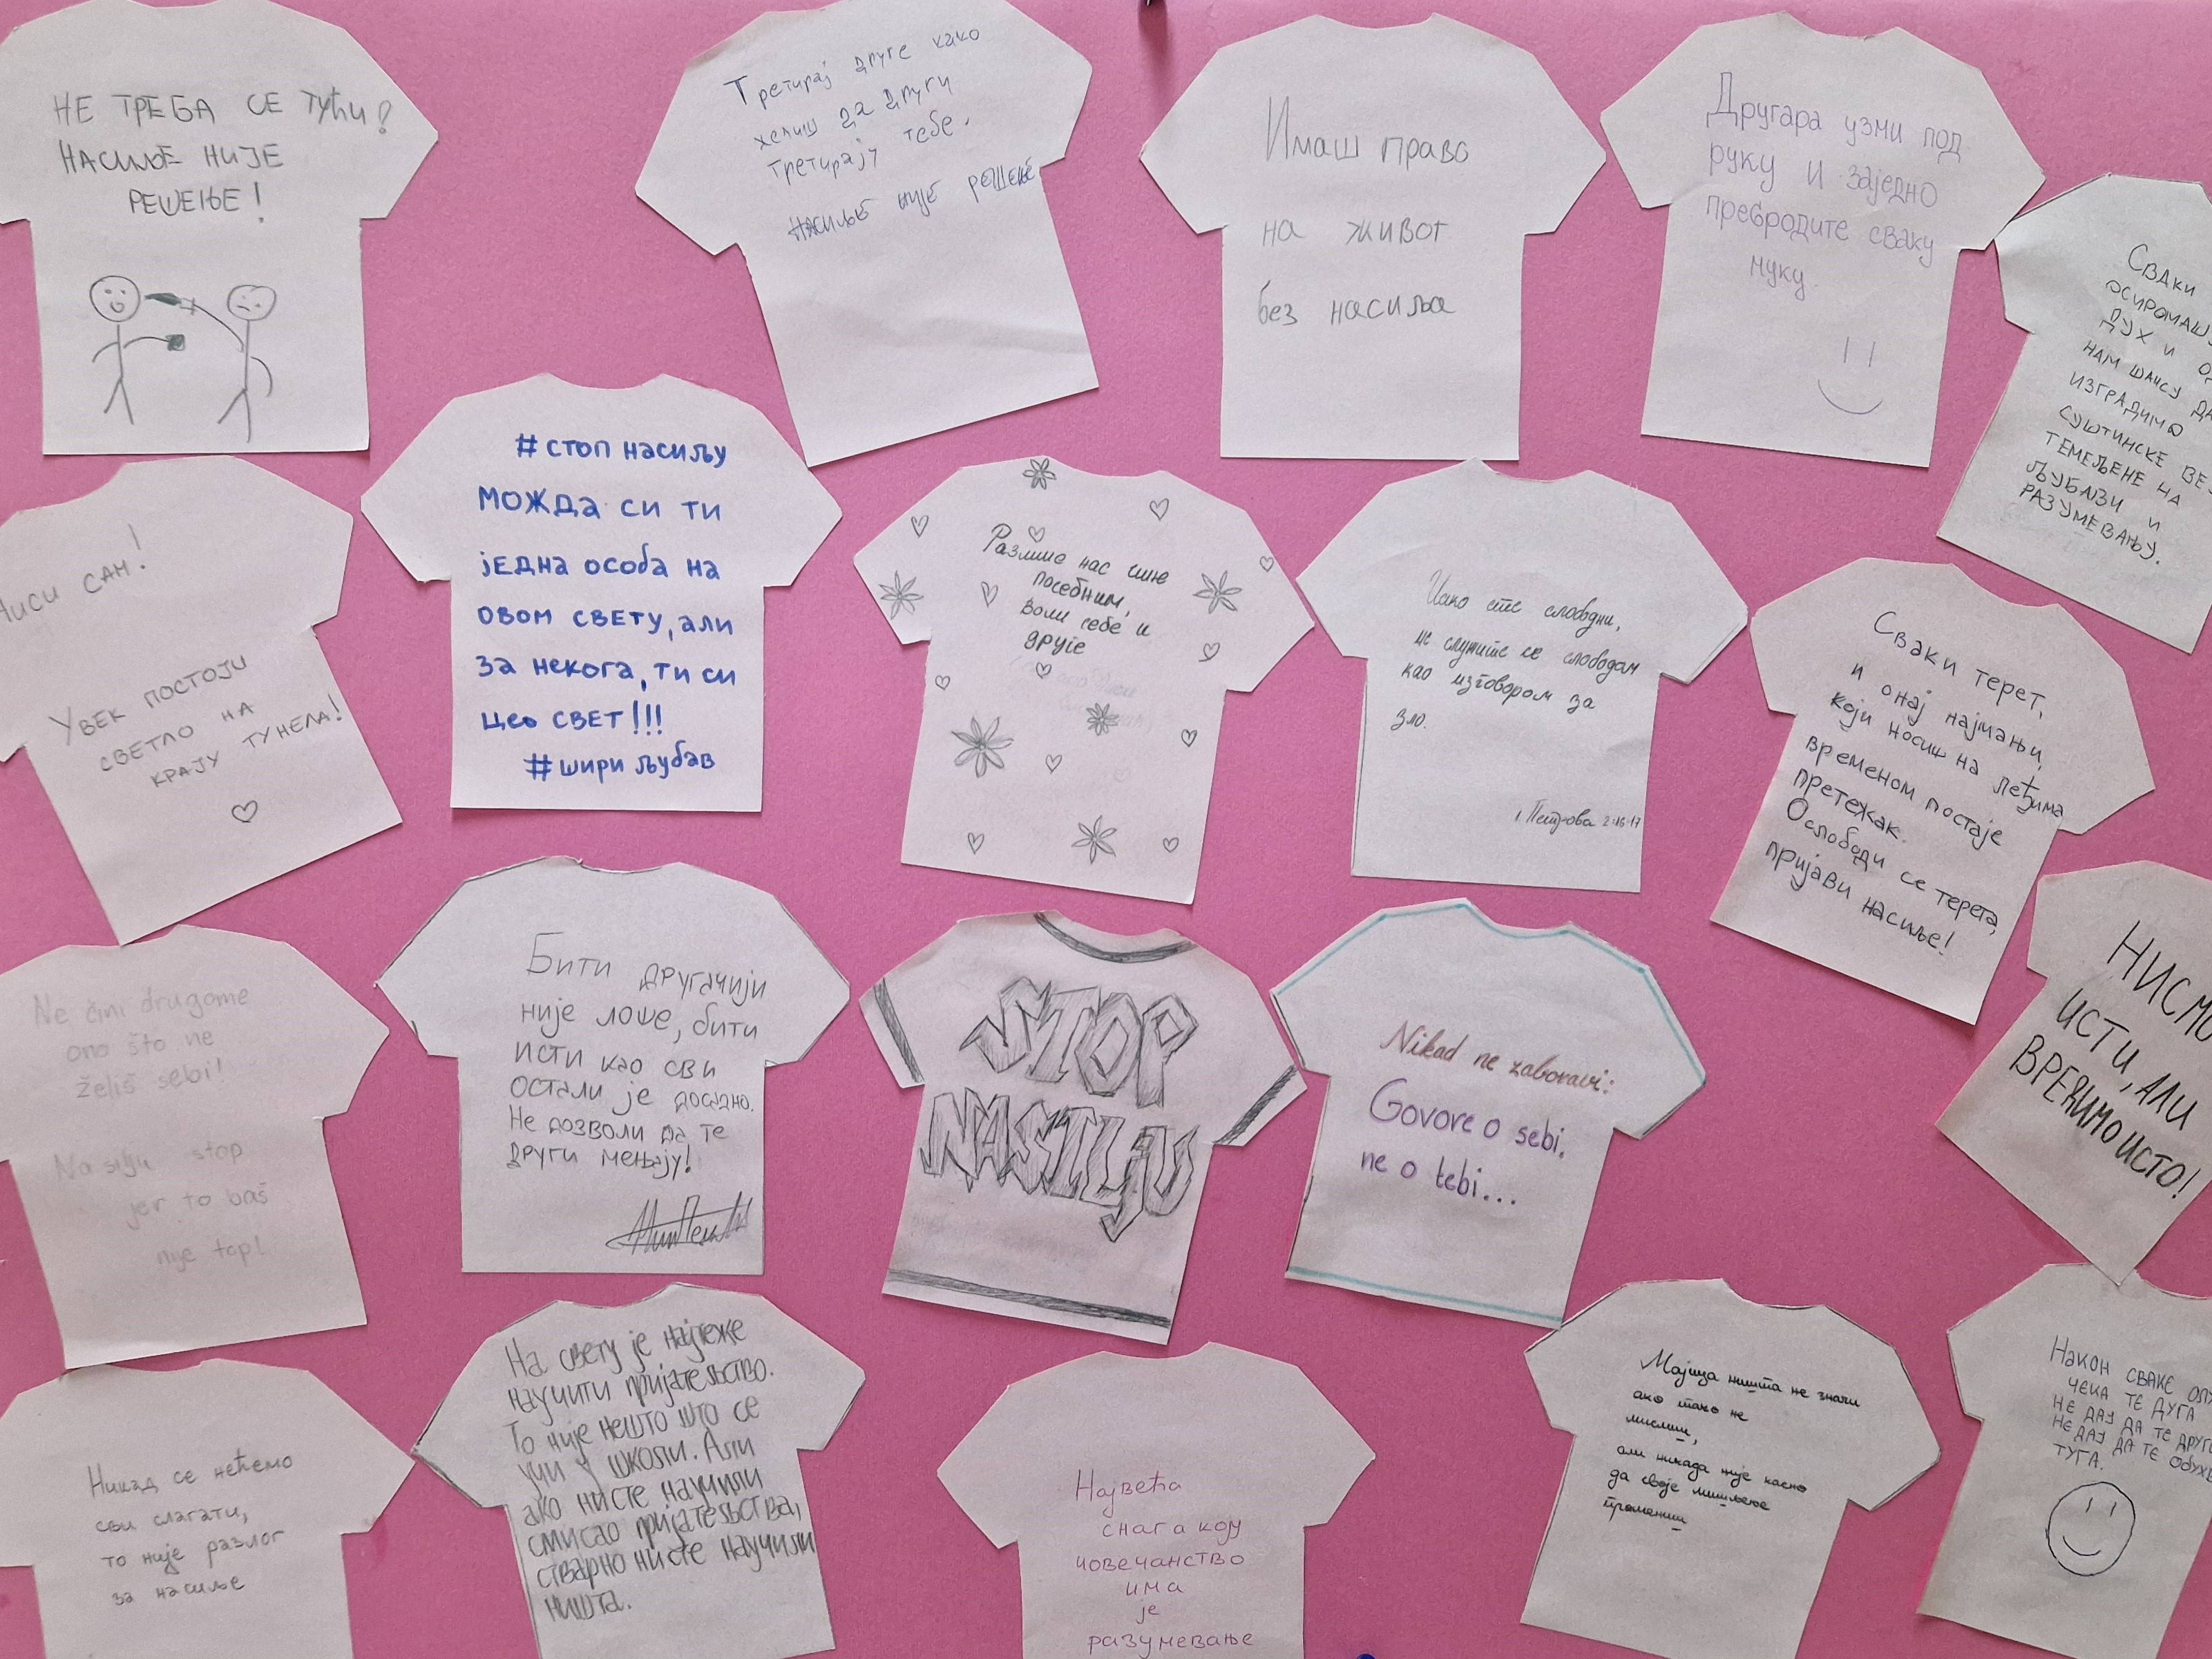 НЕ ТРЕБА СЕ ТУЋИ!
НАСИЉЕ НИЈЕ
РЕШЕЊЕ!
Третирај друге како
желиш да други
третирају тебе.
НАСИЉЕ НИЈЕ РЕШЕЊЕ
Имаш право
на живот
без насиља
Другара узми под
руку и заједно
пребродите сваку
муку.
СВАКИ
ДУХ И
НАМ ШАНСУ ДА
ИЗГРАДИМО
СУШТИНСКЕ
ТЕМЕЉЕНЕ НА
ЉУБАВИ И
РАЗУМЕВАЊУ.
НИСИ САМ!
УВЕК ПОСТОЈИ
СВЕТЛО НА
КРАЈУ ТУНЕЛА!
#СТОП НАСИЉУ
МОЖДА СИ ТИ
ЈЕДНА ОСОБА НА
ОВОМ СВЕТУ, АЛИ
ЗА НЕКОГА, ТИ СИ
ЦЕО СВЕТ!!!
#ШИРИ ЉУБАВ
нас чине
посебним,
воли себе и
друге
Иако сте слободни,
не служите се слободом
као изговором за
зло.
1. Петрова 2:16-17
Сваки терет,
и онај најмањи,
који носиш на леђима
временом постаје
претежак.
Ослободи се терета,
пријави насиље!
НИСМО
ИСТИ, АЛИ
ВРЕДИМО ИСТО!
Ne čini drugome
ono što ne
želiš sebi!
Nasilju stop
jer to baš
nije top!
Бити другачији
није лоше, бити
исти као сви
остали је досадно.
Не дозволи да те
други мењају!
STOP
NASILJU
Nikad ne zaboravi:
Govore o sebi,
ne o tebi...
Никад се нећемо
сви слагати,
то није разлог
за насиље
На свету је најтеже
научити пријатељство.
То није нешто што се
учи у школи. Али
ако нисте научили
смисао пријатељства,
стварно нисте научили
ништа.
Највећа
снага коју
човечанство
има
је
разумевање
Мајица ништа не значи
ако тако не
мислиш,
али никада није касно
да своје мишљење
промениш
НАКОН СВАКЕ
ЧЕКА ТЕ ДУГА
НЕ ДАЈ ДА ТЕ
НЕ ДАЈ ДА ТЕ
ТУГА.